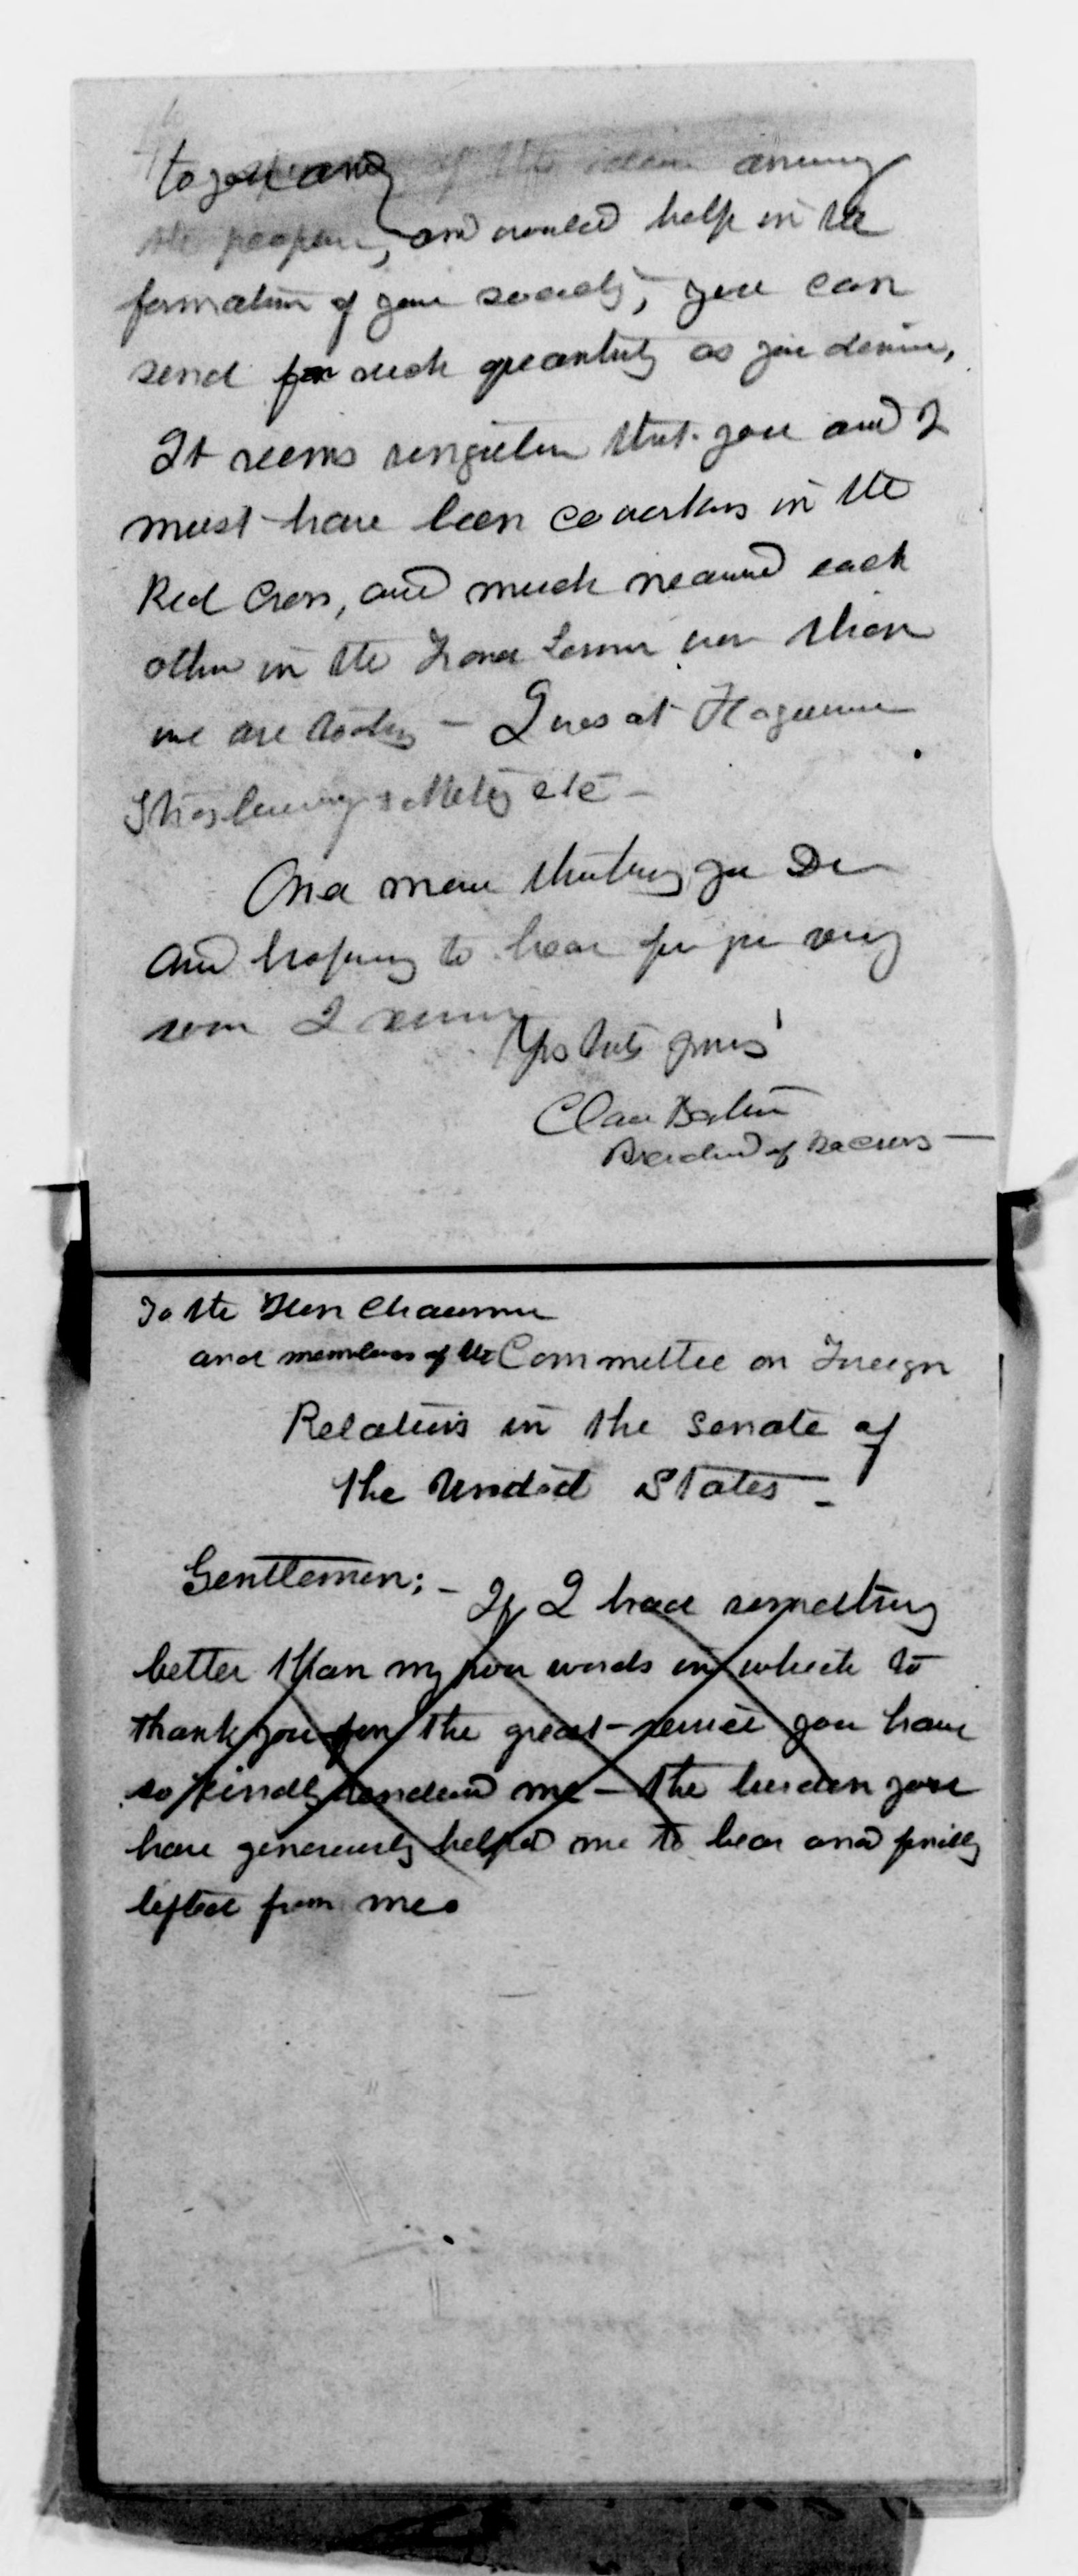 to you and of the idea among
the people, and would help in the
formation of your society, you can
send for such quantity as you desire,
It seems singular that you and I
must have been coworkers in the
Red Cross, and much nearer each
other in the Franco German war than
we are today — I was at Haguenau
Strasbourg & Metz etc —
Once more thanking you Dr
and hoping to hear from you very
soon I remain
Yrs
Clara Barton
President of Red Cross —
To the Hon Chairman
and members of the Committee on Foreign
Relations in the Senate of
the United States —
Gentlemen; — If I had something
better than my poor words in which to
thank you for the great service you have
so kindly rendered me — the burden you
have generously helped me to bear and finally
lifted from me.